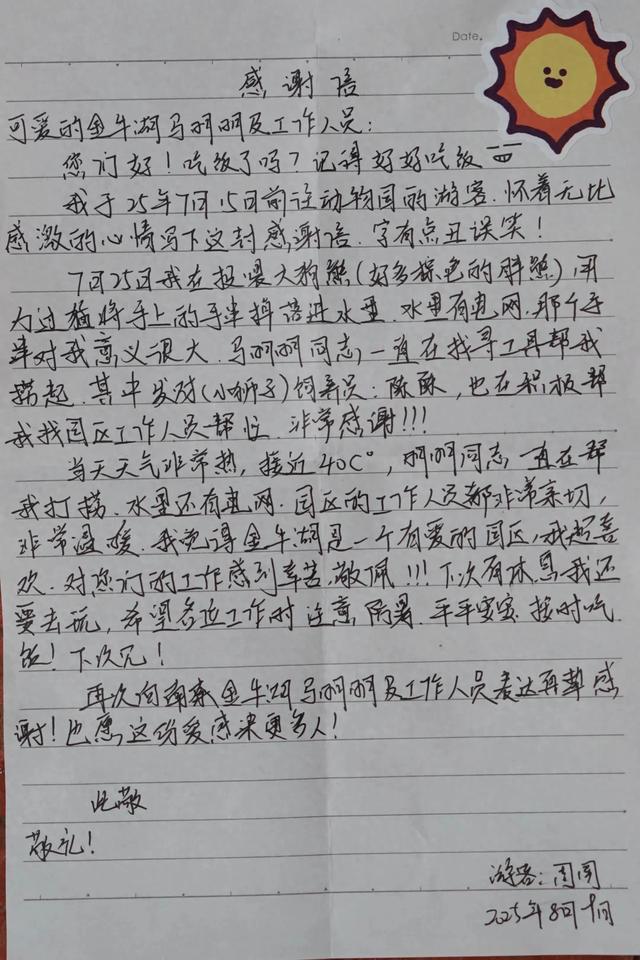 Date.
感谢语
可爱的金牛湖马明明及工作人员：
您们好！吃饭了吗？记得好好吃饭
我于25年7月15日前往动物园的游客.怀着无比
感激的心情写下这封感谢语.字有点丑误笑！
7月25日我在投喂大狗熊(好多棕色的胖熊)因
为过猛将手上的手串掉落进水里.水里有电网.那个手
串对我意义很大.马明明同志,一直在找寻工具帮我
捞起.其中发财(小狮子)饲养员：陈酥,也在积极帮
我找园区工作人员帮忙.非常感谢!!!
当天天气非常热,接近40C°,明明同志一直在帮
我打捞.水里还有电网.园区的工作人员都非常亲切,
非常温暖.我觉得金牛湖是一个有爱的园区,我超喜
欢.对您们的工作感到辛苦.敬佩!!!下次有休息我还
要去玩,希望各位工作时注意防暑.平平安安.按时吃
饭！下次见！
再次向南京金牛湖马明明及工作人员表达真挚感
谢！也愿这份爱感染更多人！
此敬
敬礼！
游客：周周
2025年8月十日